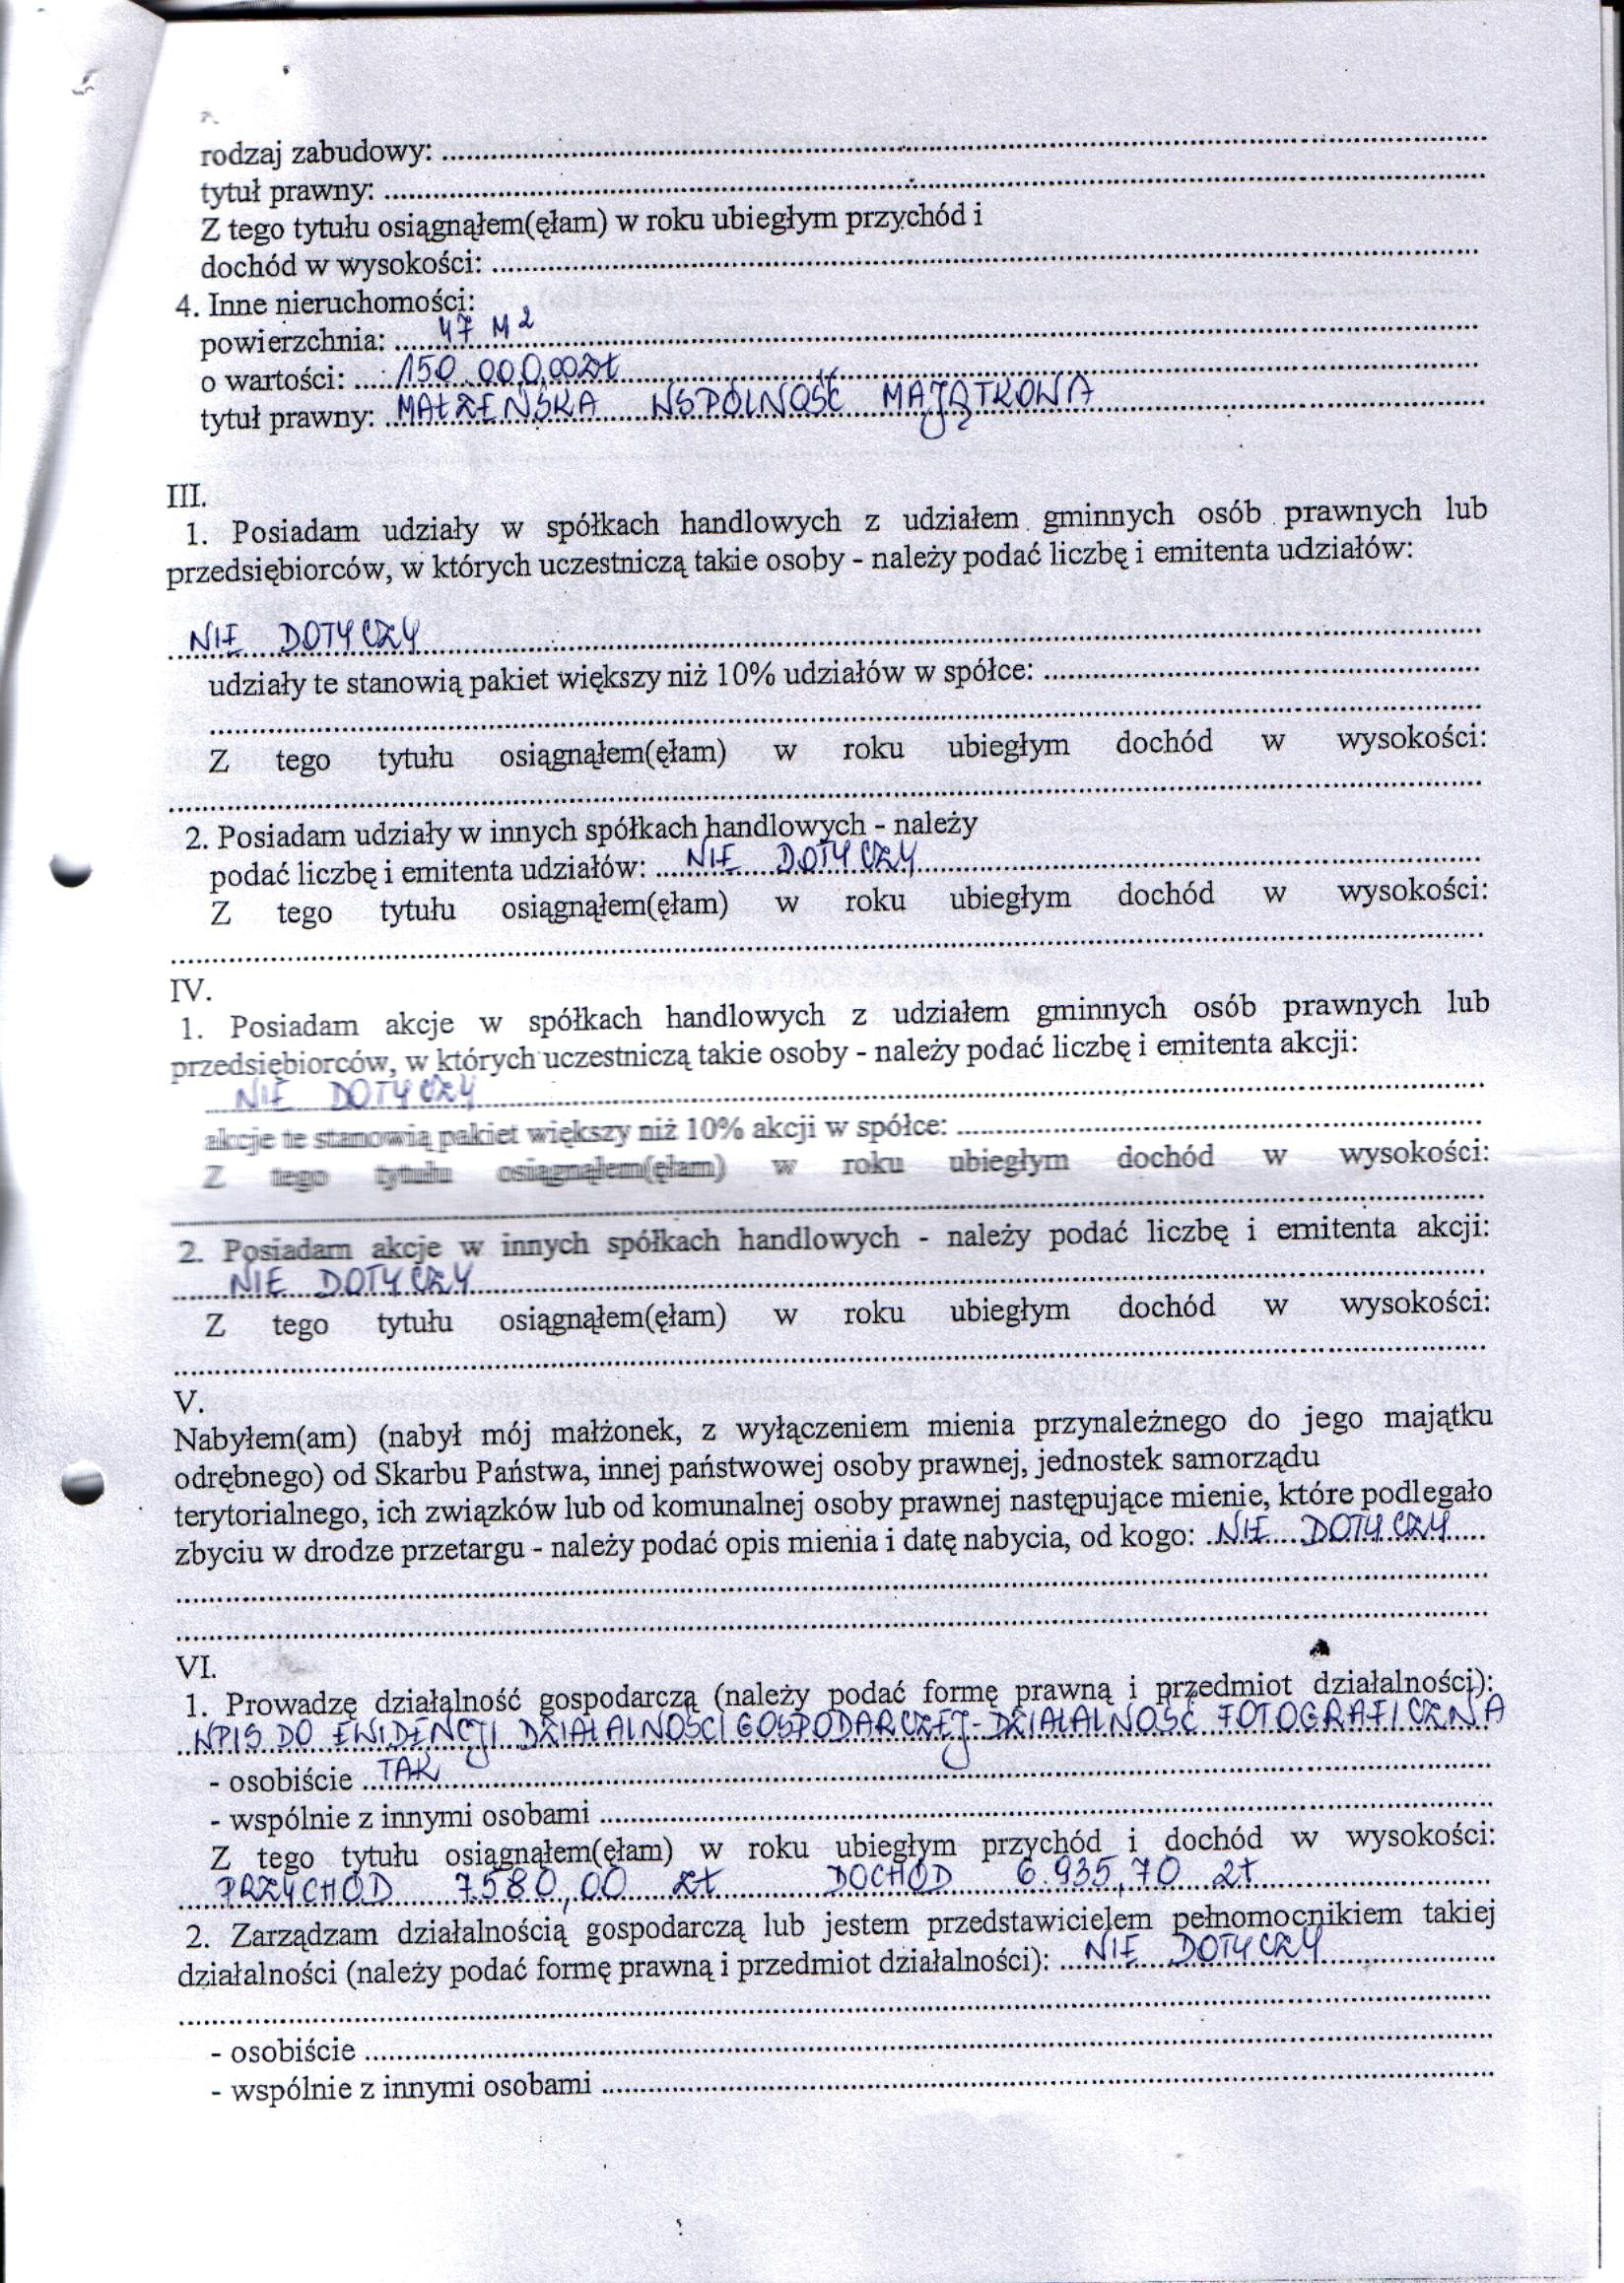 rodzaj zabudowy: ....................
tytuł prawny: ....................
Z tego tytułu osiągnąłem(ęłam) w roku ubiegłym przychód i
dochód w wysokości: ....................
4. Inne nieruchomości:
powierzchnia: 47 M2
o wartości: 150.000,00 zł
tytuł prawny: MAŁŻEŃSKA WSPÓLNOŚĆ MAJĄTKOWA
III.
1. Posiadam udziały w spółkach handlowych z udziałem gminnych osób prawnych lub
przedsiębiorców, w których uczestniczą takie osoby - należy podać liczbę i emitenta udziałów:
NIE DOTYCZY
udziały te stanowią pakiet większy niż 10% udziałów w spółce: ....................
....................
Z tego tytułu osiągnąłem(ęłam) w roku ubiegłym dochód w wysokości:
....................
2. Posiadam udziały w innych spółkach handlowych - należy
podać liczbę i emitenta udziałów: NIE DOTYCZY
Z tego tytułu osiągnąłem(ęłam) w roku ubiegłym dochód w wysokości:
....................
IV.
1. Posiadam akcje w spółkach handlowych z udziałem gminnych osób prawnych lub
przedsiębiorców, w których uczestniczą takie osoby - należy podać liczbę i emitenta akcji:
NIE DOTYCZY
akcje te stanowią pakiet większy niż 10% akcji w spółce: ....................
Z tego tytułu osiągnąłem(ęłam) w roku ubiegłym dochód w wysokości:
....................
2. Posiadam akcje w innych spółkach handlowych - należy podać liczbę i emitenta akcji:
NIE DOTYCZY
Z tego tytułu osiągnąłem(ęłam) w roku ubiegłym dochód w wysokości:
....................
V.
Nabyłem(am) (nabył mój małżonek, z wyłączeniem mienia przynależnego do jego majątku
odrębnego) od Skarbu Państwa, innej państwowej osoby prawnej, jednostek samorządu
terytorialnego, ich związków lub od komunalnej osoby prawnej następujące mienie, które podlegało
zbyciu w drodze przetargu - należy podać opis mienia i datę nabycia, od kogo: NIE DOTYCZY
....................
....................
VI.
1. Prowadzę działalność gospodarczą (należy podać formę prawną i przedmiot działalności):
WPIS DO EWIDENCJI DZIAŁALNOŚCI GOSPODARCZEJ - DZIAŁALNOŚĆ FOTOGRAFICZNA
- osobiście TAK
- wspólnie z innymi osobami ....................
Z tego tytułu osiągnąłem(ęłam) w roku ubiegłym przychód i dochód w wysokości:
PRZYCHÓD 7.580,00 zł DOCHÓD 6.935,70 zł
2. Zarządzam działalnością gospodarczą lub jestem przedstawicielem pełnomocnikiem takiej
działalności (należy podać formę prawną i przedmiot działalności): NIE DOTYCZY
....................
- osobiście ....................
- wspólnie z innymi osobami ....................